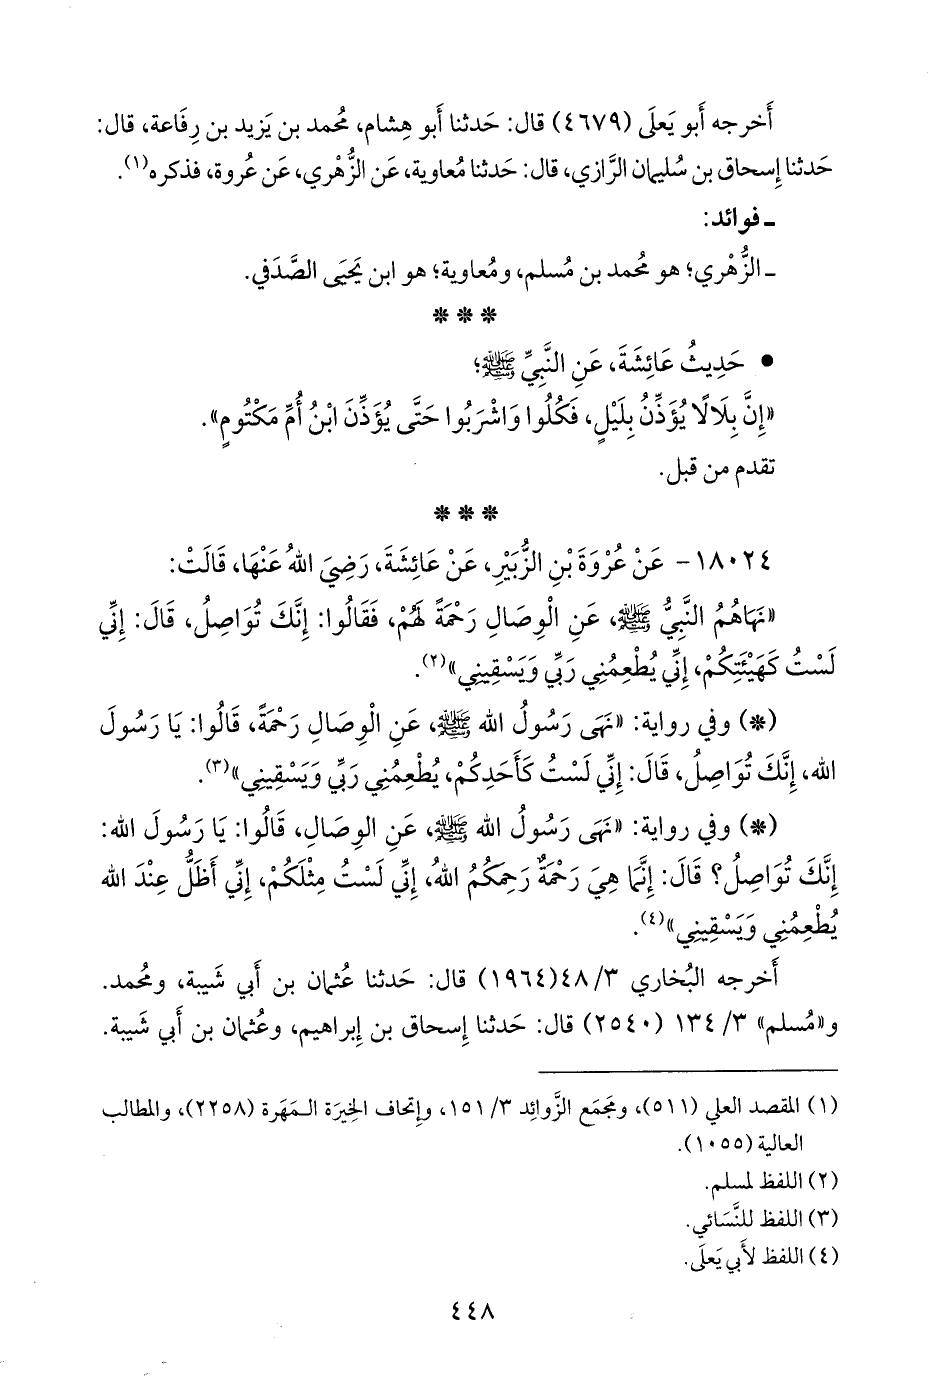 أَخرجه أَبو يَعلَى (٤٦٧٩) قال: حَدثنا أَبو هِشام، مُحمد بن يَزيد بن رِفَاعة، قال:
حَدثنا إِسحاق بن سُليمان الرَّازي، قال: حَدثنا مُعاوية، عَن الزُّهْري، عَن عُروة، فذكره(١).
ـ فوائد:
ـ الزُّهْري؛ هو مُحمد بن مُسلم، ومُعاوية؛ هو ابن يَحيَى الصَّدَفي.
* * *
• حَدِيثُ عَائِشَةَ، عَنِ النَّبِيِّ ﷺ؛
«إِنَّ بِلَالًا يُؤَذِّنُ بِلَيْلٍ، فَكُلُوا وَاشْرَبُوا حَتَّى يُؤَذِّنَ ابْنُ أُمِّ مَكْتُومٍ».
تقدم من قبل.
* * *
١٨٠٢٤- عَنْ عُرْوَةَ بْنِ الزُّبَيْرِ، عَنْ عَائِشَةَ، رَضِيَ اللهُ عَنْهَا، قَالَتْ:
«نَهَاهُمُ النَّبِيُّ ﷺ، عَنِ الْوِصَالِ رَحْمَةً لَهُمْ، فَقَالُوا: إِنَّكَ تُوَاصِلُ، قَالَ: إِنِّي
لَسْتُ كَهَيْئَتِكُمْ، إِنِّي يُطْعِمُنِي رَبِّي وَيَسْقِينِي»(٢).
(*) وفي رواية: «نَهَى رَسُولُ الله ﷺ، عَنِ الْوِصَالِ رَحْمَةً، قَالُوا: يَا رَسُولَ
الله، إِنَّكَ تُوَاصِلُ، قَالَ: إِنِّي لَسْتُ كَأَحَدِكُمْ، يُطْعِمُنِي رَبِّي وَيَسْقِينِي»(٣).
(*) وفي رواية: «نَهَى رَسُولُ الله ﷺ، عَنِ الوِصَالِ، قَالُوا: يَا رَسُولَ الله:
إِنَّكَ تُوَاصِلُ؟ قَالَ: إِنَّمَا هِيَ رَحْمَةٌ رَحِمَكُمُ اللهُ، إِنِّي لَسْتُ مِثْلَكُمْ، إِنِّي أَظَلُّ عِنْدَ الله
يُطْعِمُنِي وَيَسْقِينِي»(٤).
أَخرجه البُخاري ٣/ ٤٨(١٩٦٤) قال: حَدثنا عُثمان بن أَبي شَيبة، ومُحمد.
و«مُسلم» ٣/ ١٣٤ (٢٥٤٠) قال: حَدثنا إِسحاق بن إِبراهيم، وعُثمان بن أَبي شَيبة.
(١) المقصد العلي (٥١١)، ومَجمَع الزَّوائِد ٣/ ١٥١، وإِتحاف الخِيرَة المَهَرة (٢٢٥٨)، والمطالب
العالية (١٠٥٥).
(٢) اللفظ لمسلم.
(٣) اللفظ للنَّسَائي.
(٤) اللفظ لأَبي يَعلَى.
٤٤٨